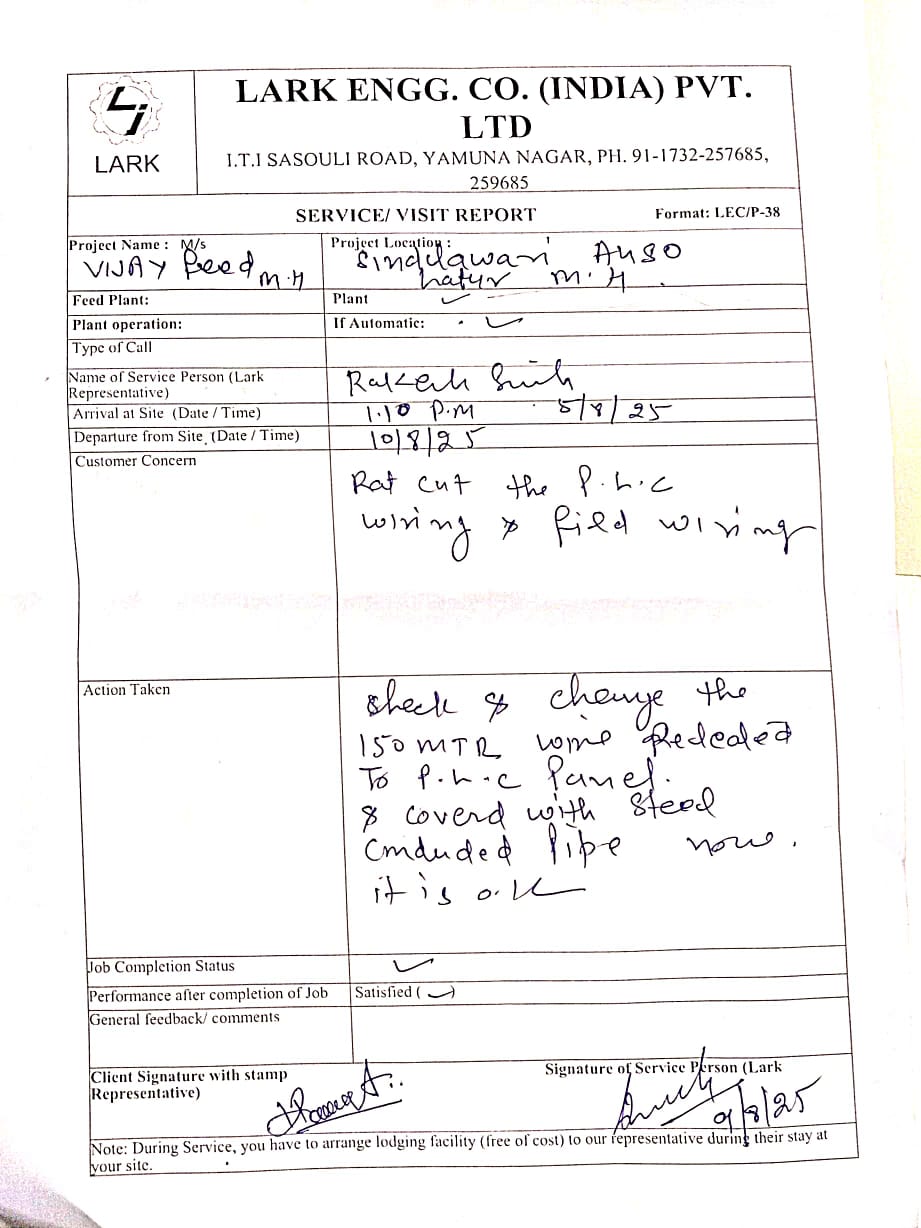 LARK
LARK ENGG. CO. (INDIA) PVT.
LTD
I.T.I SASOULI ROAD, YAMUNA NAGAR, PH. 91-1732-257685,
259685
SERVICE/ VISIT REPORT Format: LEC/P-38
Project Name : M/s
VIJAY feed M.H
Project Location :
M.H.
Feed Plant: Plant ✓
Plant operation: If Automatic: ✓
Type of Call
Name of Service Person (Lark
Representative)
Rakesh
Arrival at Site (Date / Time) 1.10 P.M 5/8/25
Departure from Site (Date / Time) 10/8/25
Customer Concern
Rat cut the P.L.C
wiring & field wiring
Action Taken
check & change the
150 MTR
To P.L.C Panel.
& coverd with Steel
Pipe now.
it is o.K
Job Completion Status ✓
Performance after completion of Job Satisfied ( ✓ )
General feedback/ comments
Client Signature with stamp
Representative)
Signature of Service Person (Lark
9/8/25
Note: During Service, you have to arrange lodging facility (free of cost) to our representative during their stay at
your site.